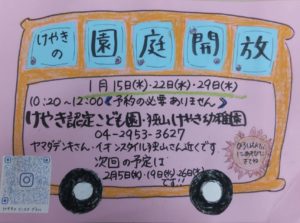 けやきの
園庭開放
1月15日(水)・22日(水)・29日(水)
10:20~12:00《予約の必要ありません》
けやき認定こども園・狭山けやき幼稚園
04-2953-3627
ヤマダデンキさん・イオンスタイル狭山さん近くです
次回の予定は
2月5日(水)・19日(水)・26日(水)
です!!